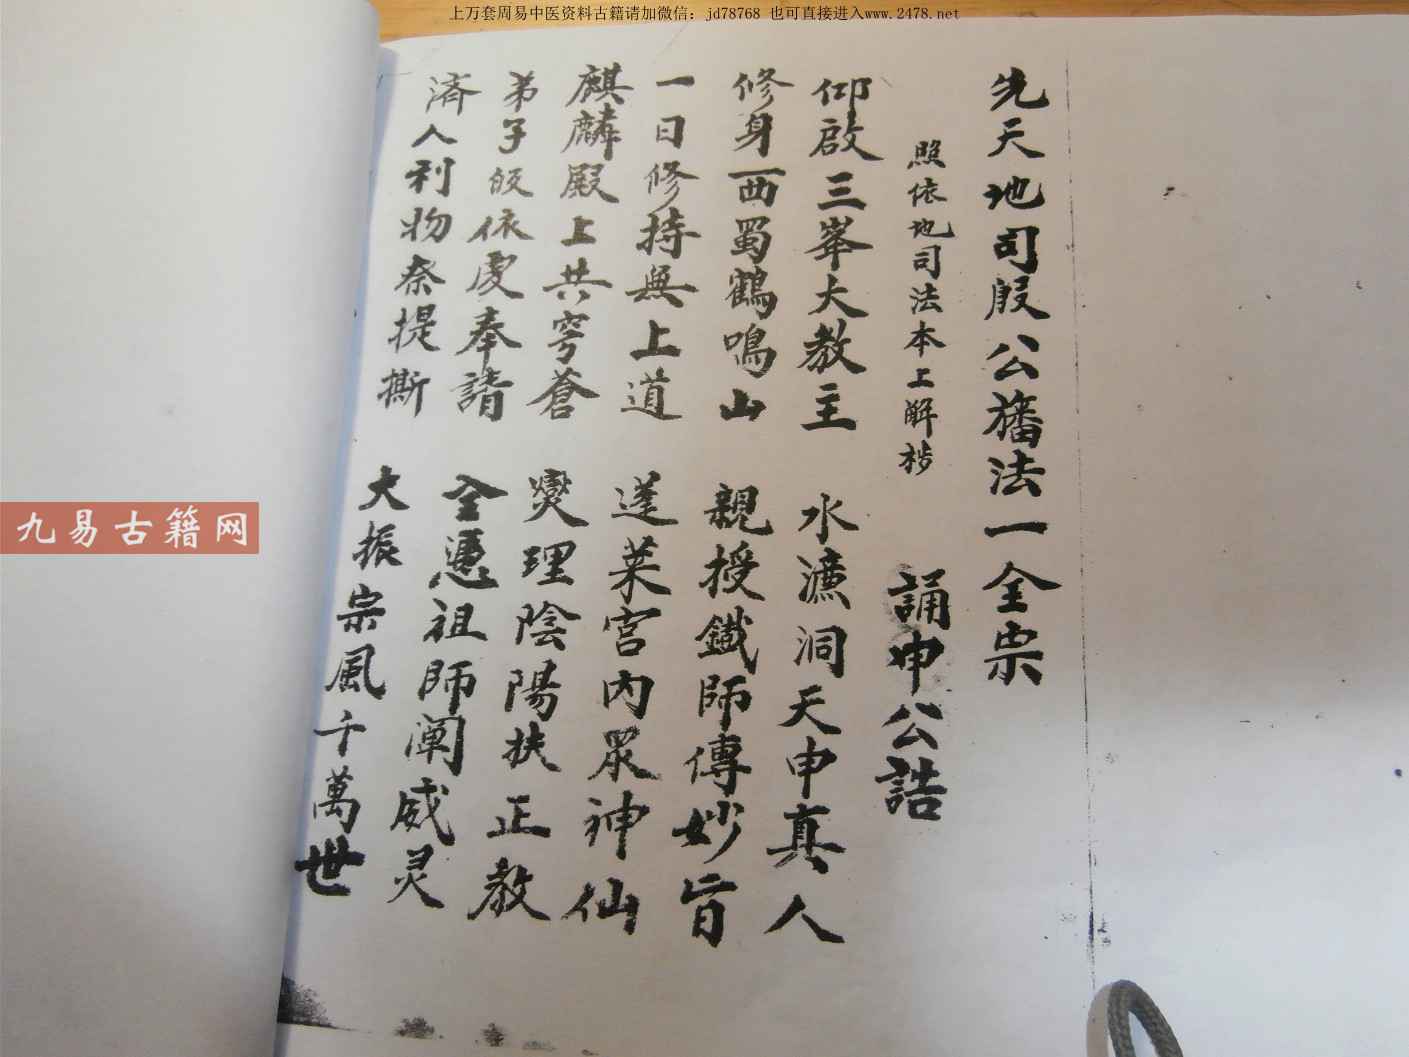 上万套周易中医资料古籍请加微信：jd78768 也可直接进入www.2478.net
先天地司殷公旛法一全宗
照依地司法本上解 誦申公誥
仰啟三峯大教主 水濂洞天申真人
修身西蜀鶴鳴山 親授鐵師傳妙旨
一日修持無上道 蓬萊宮内眾神仙
麒麟殿上共穹蒼 燮理陰陽扶正教
弟子皈依虔奉請 全憑祖師闡威灵
済人利物奈提撕 大振宗風千萬世
九易古籍网